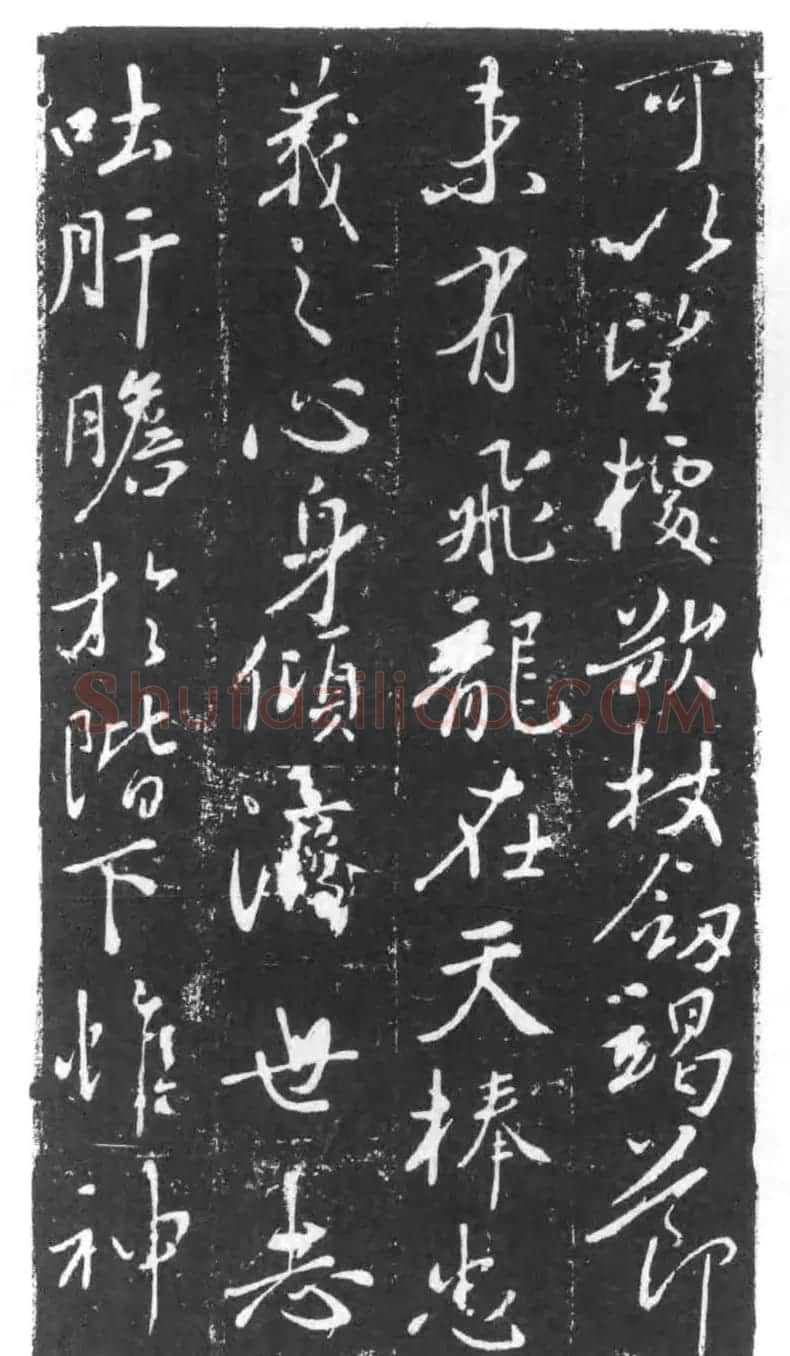 可以望欲杖劒竭節
未有飛龍在天捧忠
義之心身傾濟世志
吐肝膽於階下惟神
Shufaziliao.COM